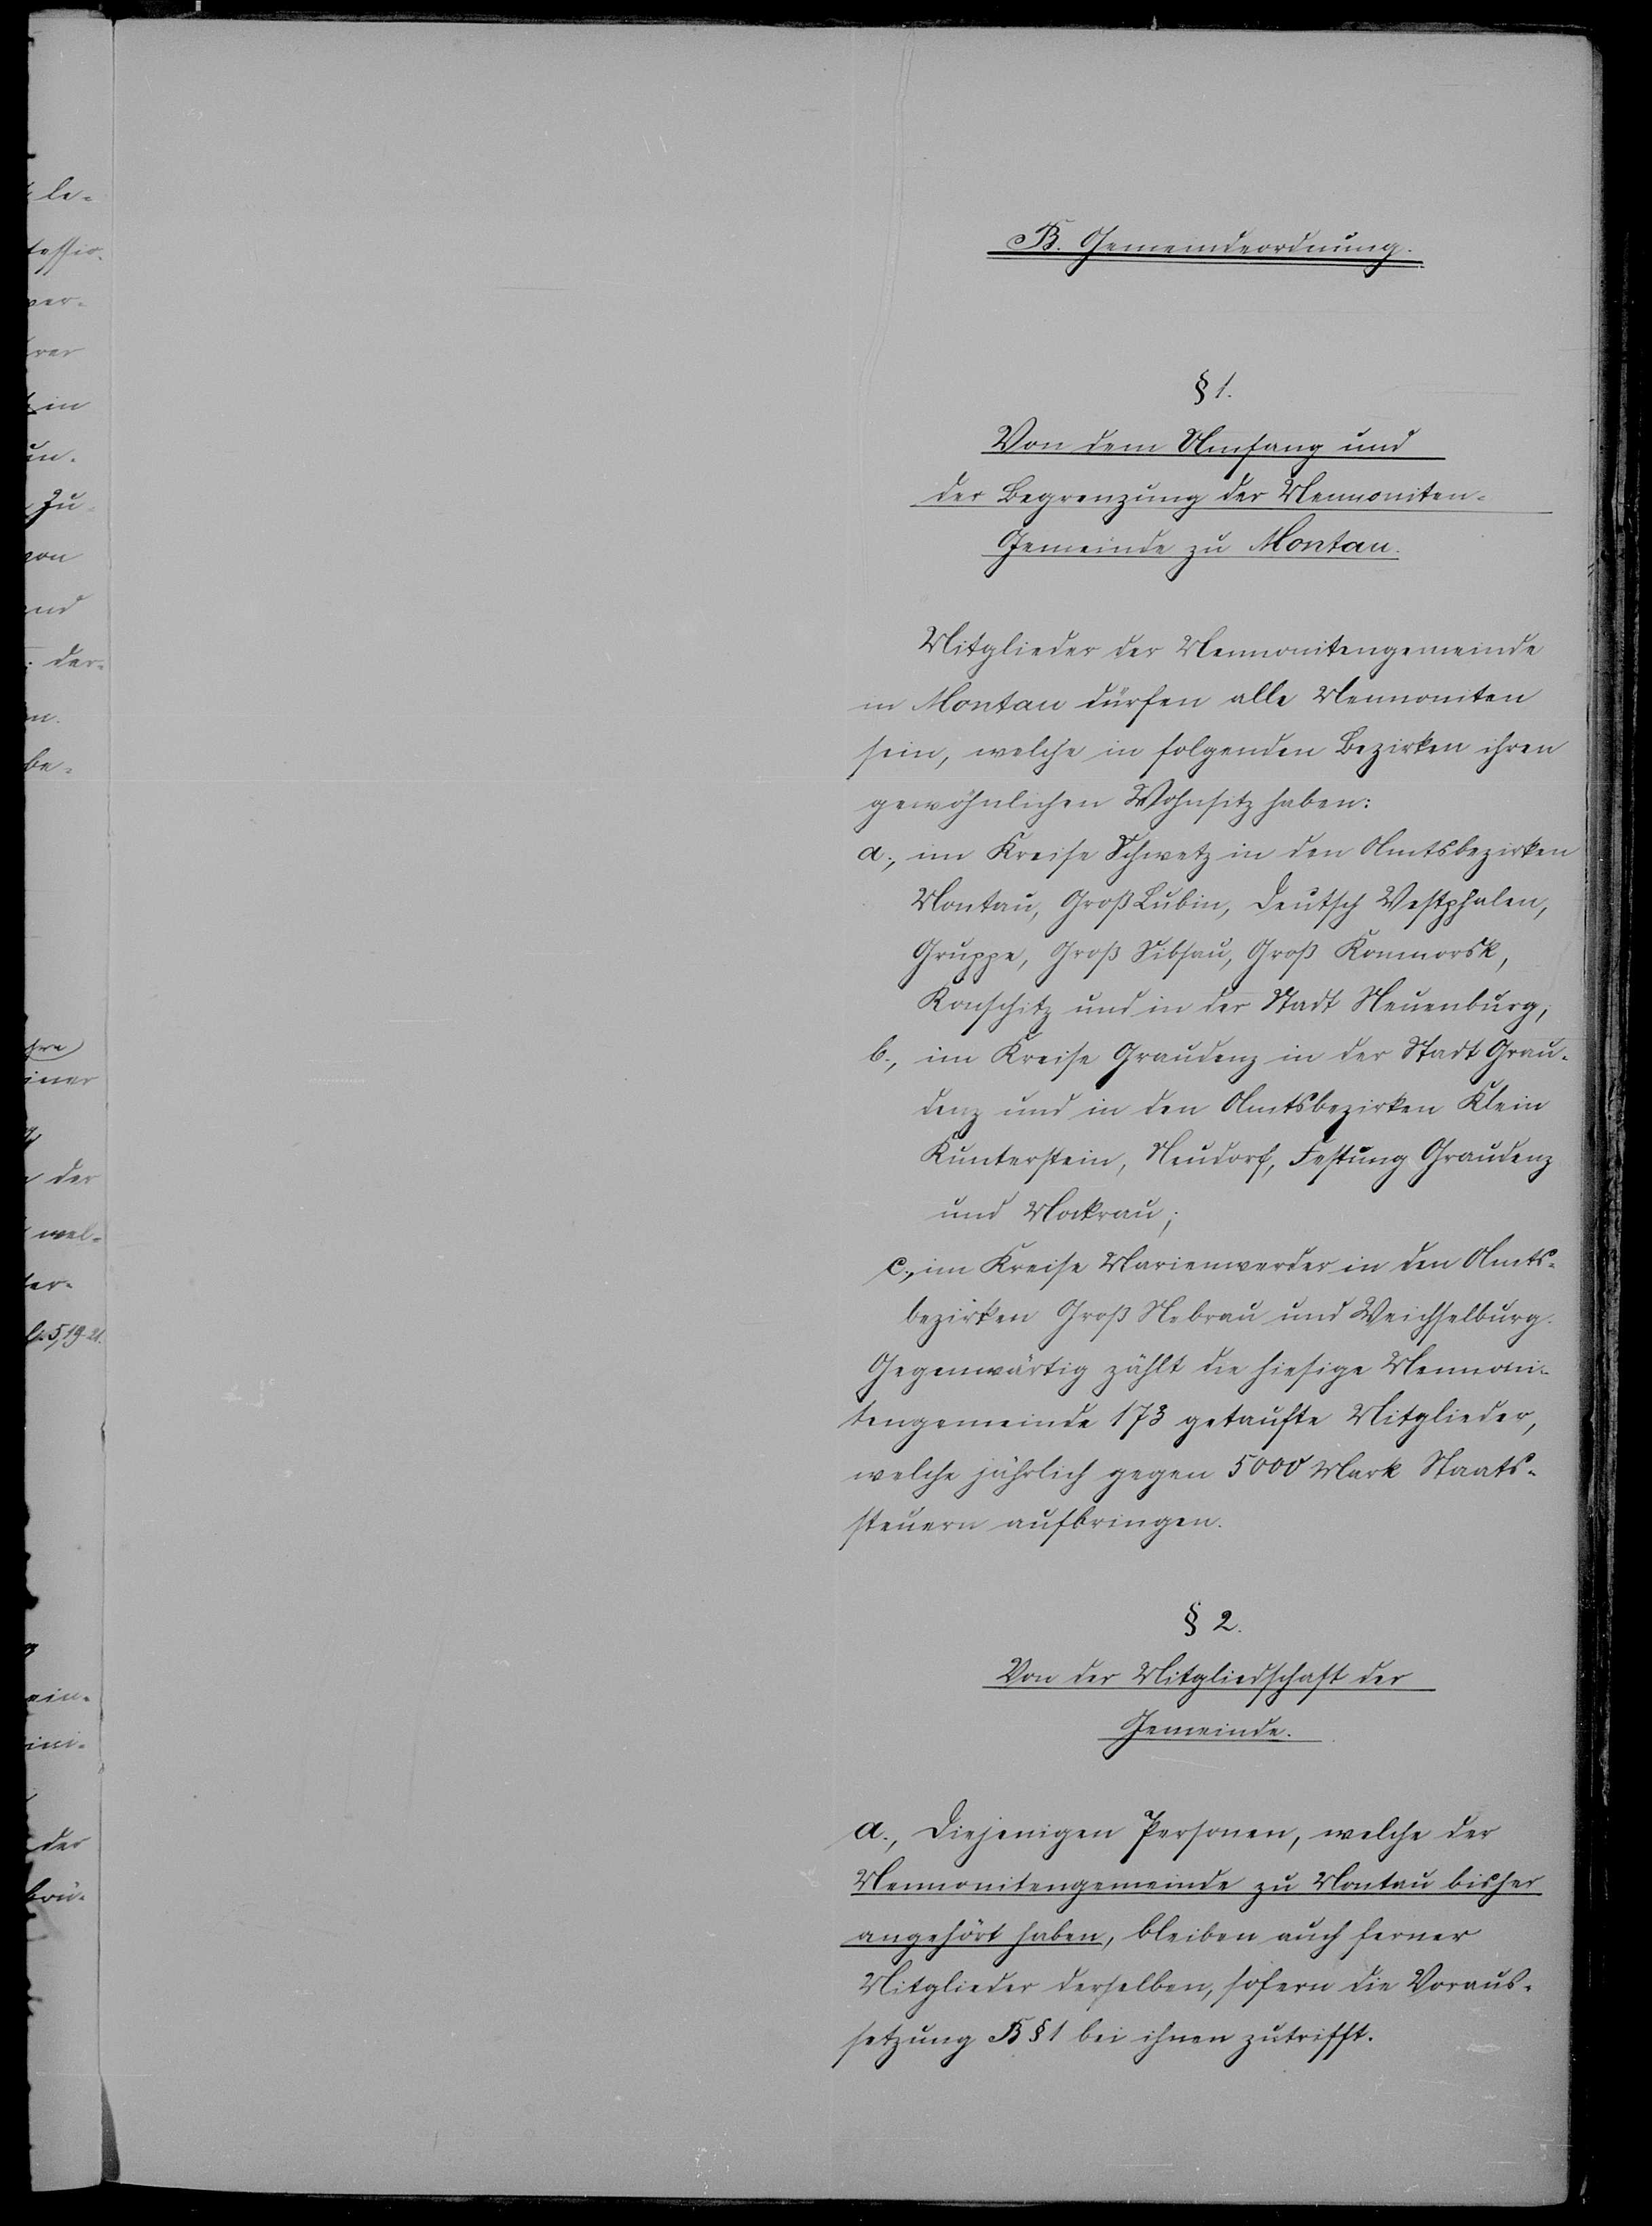 B. Gemeindeordnung.
§ 1.
Von dem Umfang und
der Begrenzung der Mennoniten-
Gemeinde zu Montau.
Mitglieder der Mennonitengemeinde
in Montau dürfen alle Mennoniten
sein, welche in folgenden Bezirken ihren
gewöhnlichen Wohnsitz haben:
a., im Kreise Schwetz in den Amtsbezirken
Montau, Groß Lubin, Deutsch Westphalen,
Gruppe, Groß Sibsau, Groß Kommorsk,
Konschitz und in der Stadt Neuenburg;
b., im Kreise Graudenz in der Stadt Grau-
denz und in den Amtsbezirken Klein
Kunterstein, Neudorf, Festung Graudenz
und Mockrau;
c., im Kreise Marienwerder in den Amts-
bezirken Groß Nebrau und Weichselburg.
Gegenwärtig zählt die hiesige Mennoni-
tengemeinde 173 getaufte Mitglieder,
welche jährlich gegen 5000 Mark Staats-
steuern aufbringen.
§ 2.
Von der Mitgliedschaft der
Gemeinde.
a., Diejenigen Personen, welche der
Mennonitengemeinde zu Montau bisher
angehört haben, bleiben auch ferner
Mitglieder derselben, sofern die Voraus-
setzung B § 1 bei ihnen zutrifft.